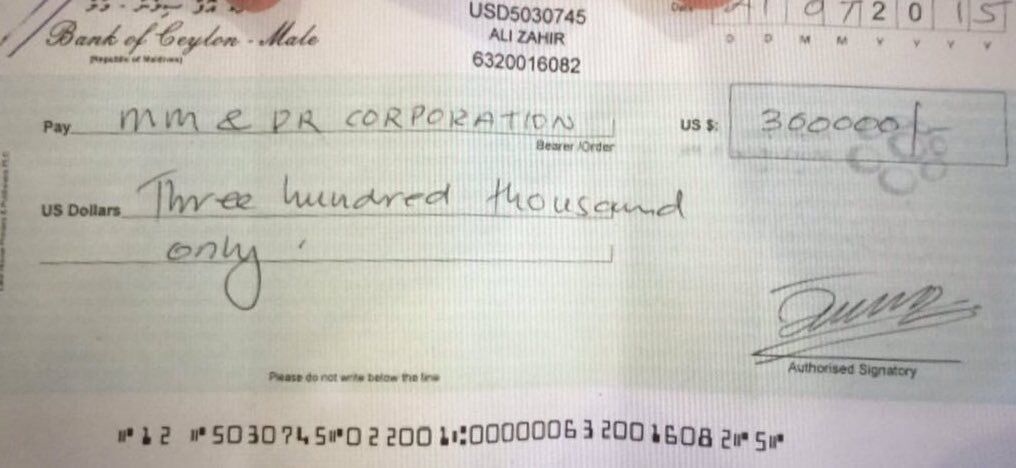 Bank of Ceylon - Male
(Republic of Maldives)
USD5030745
ALI ZAHIR
6320016082
Date 2 0 1 5
D D M M Y Y Y Y
Pay MM & DR CORPORATION
Bearer /Order
US $: 300000/-
US Dollars Three hundred thousand
only
Authorised Signatory
Please do not write below the line
⑈12 ⑈5030745⑈02200 1⑆0000006320016082⑈5⑈